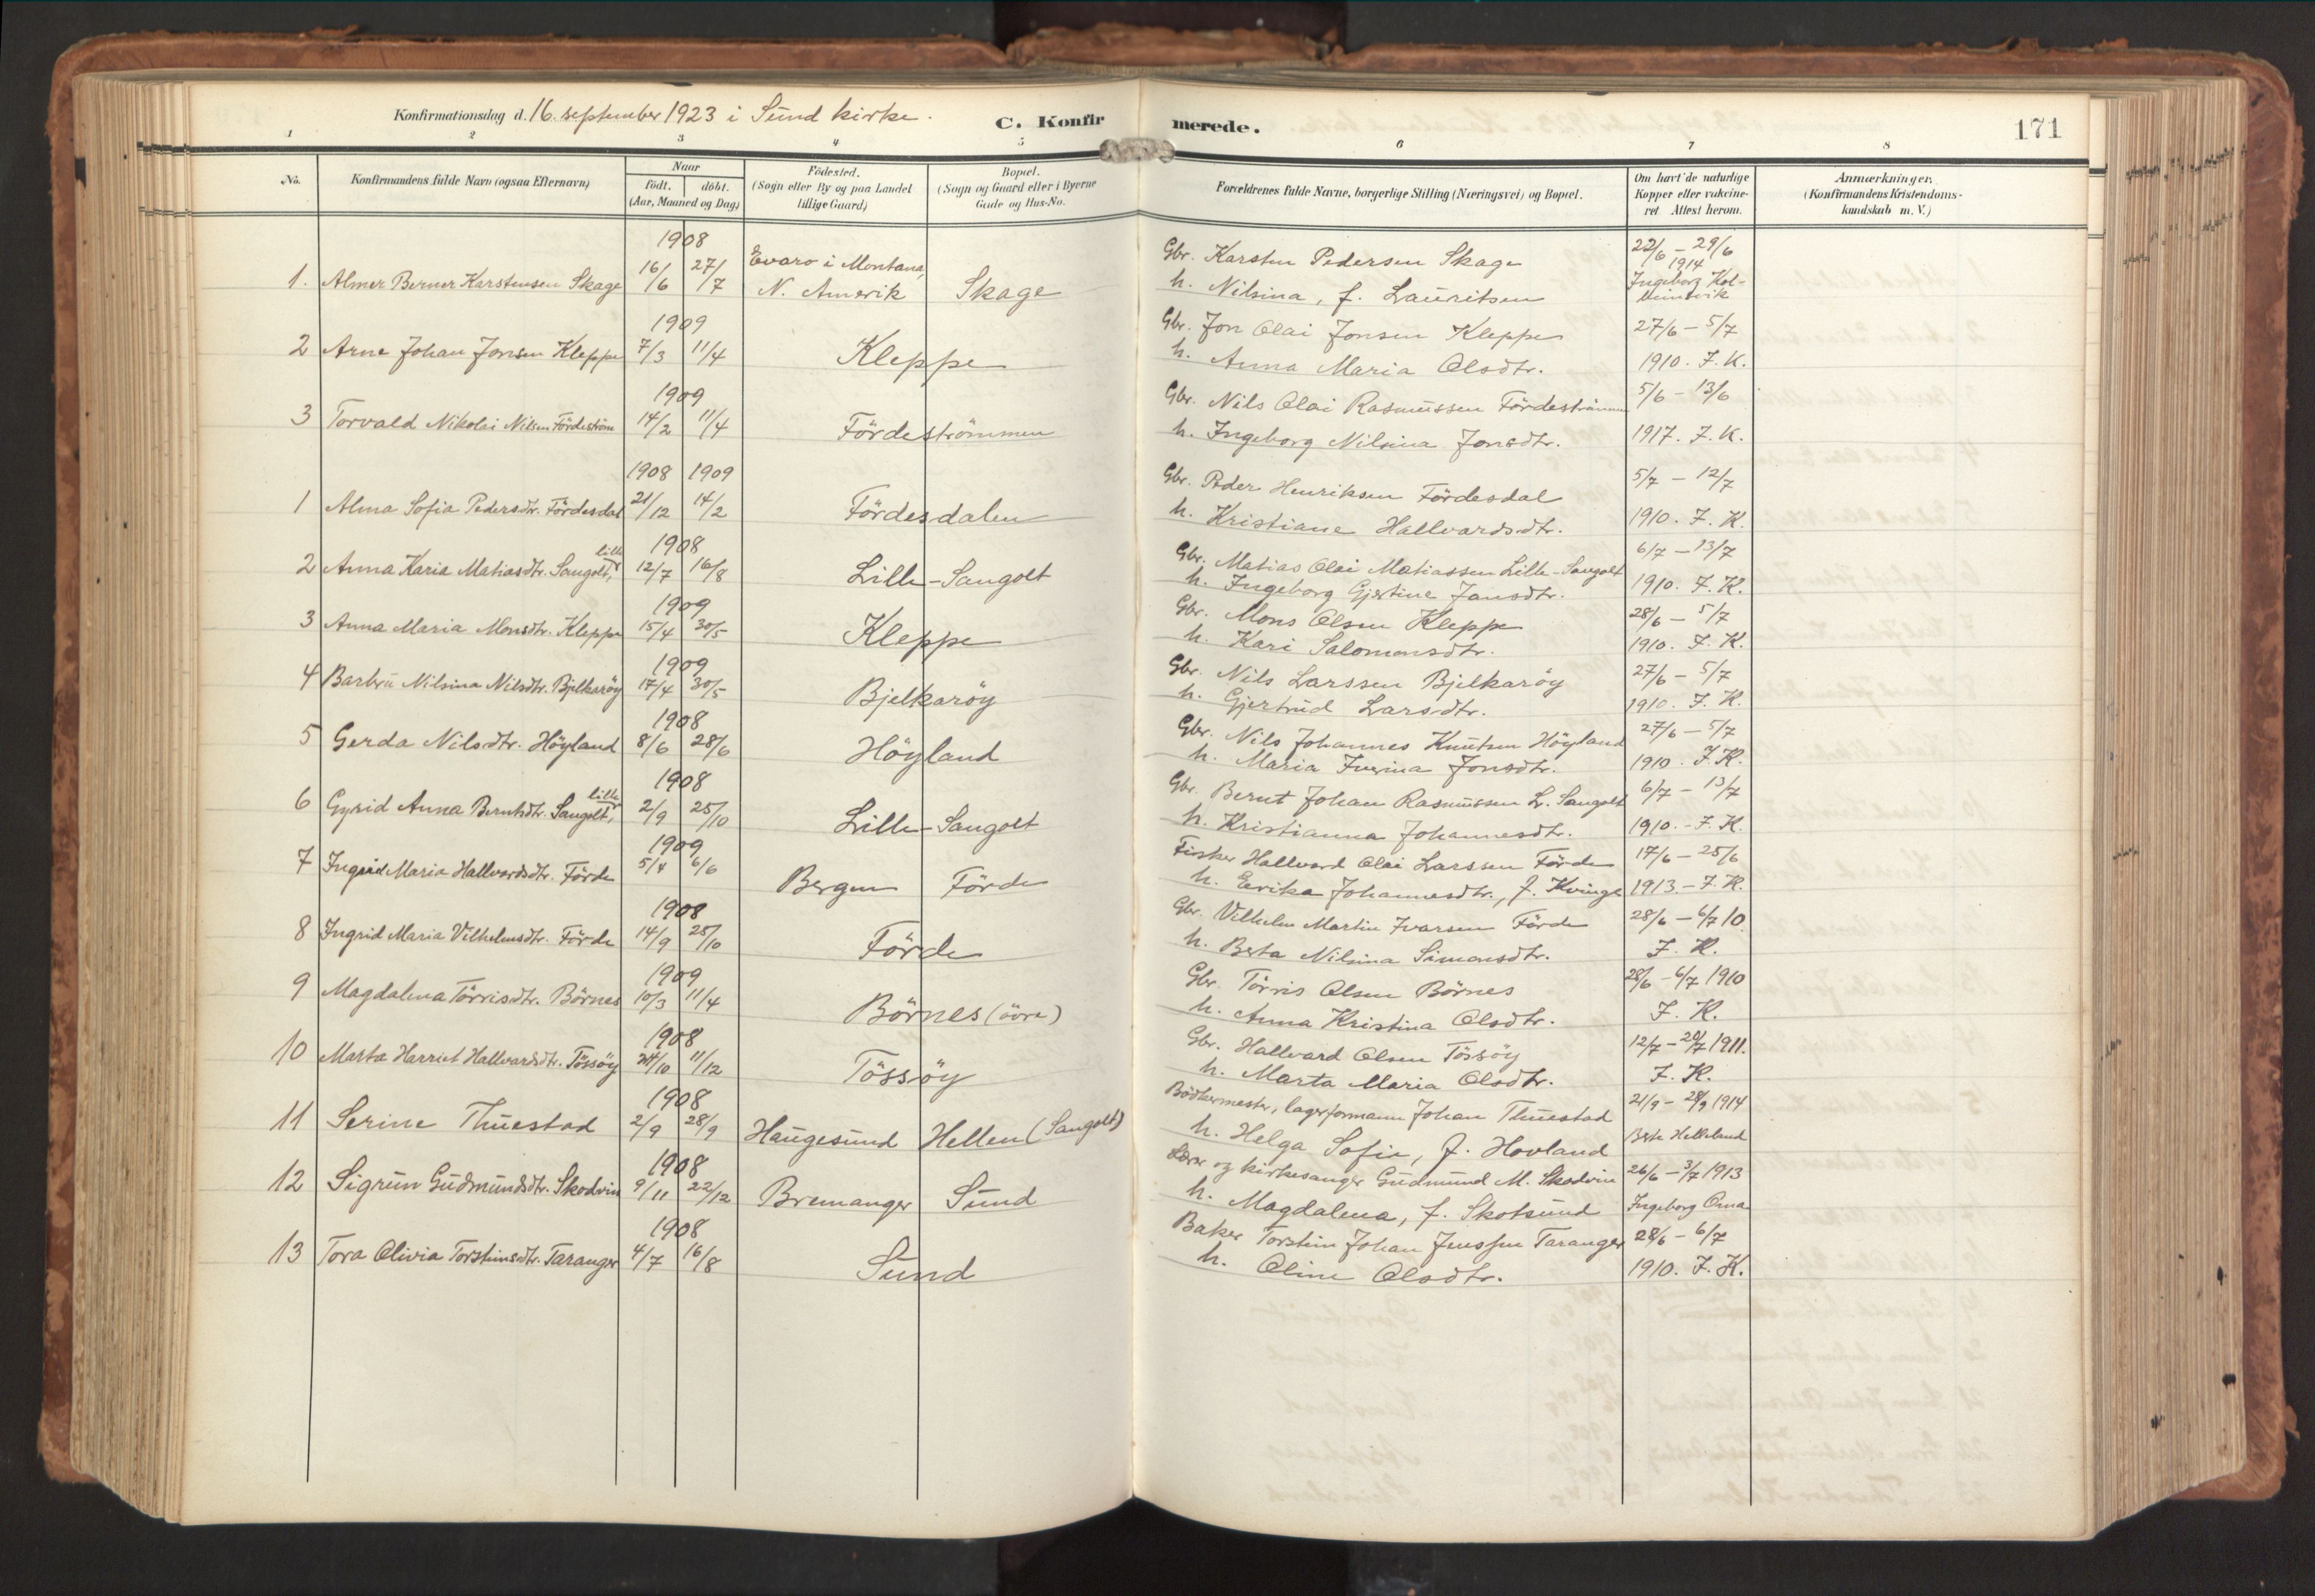 Konfirmationsdag d. 16. september 1923 i Sund kirke.
C. Konfirmerede.
171
1 2 3 4 5 6 7 8
No.
Konfirmandens fulde Navn (ogsaa Efternavn)
Naar
födt. döbt.
(Aar, Maaned og Dag)
Födested.
(Sogn eller By og paa Landet
tillige Gaard)
Bopæl.
(Sogn og Gaard eller i Byerne
Gade og Hus-No.
Forældrenes fulde Navne, borgerlige Stilling (Næringsvei) og Bopæl.
Om havt de naturlige
Kopper eller vakcine-
ret Attest herom.
Anmærkninger.
(Konfirmandens Kristendoms-
kundskab m. V.)
1908
1. Almer Berner Karstensen Skage 16/6 27/7 Evaro i Montana, N. Amerik Skage
Gbr. Karsten Pedersen Skage
h. Nilsina, f. Lauritsen
22/6 – 29/6
1914
Ingeborg
1909
2 Arne Johan Jonsen Kleppe 7/3 11/4 Kleppe
Gbr. Jon Olai Jonsen Kleppe
h. Anna Maria Olsdtr.
27/6 – 5/7
1910. I. K.
1909
3 Torvald Nikolai Nilsen Fördeström 14/2 11/4 Fördeströmmen
Gbr. Nils Olai Rasmussen Fördeströmmen
h. Ingeborg Nilsina Jonsdtr.
5/6 – 13/6
1917. I. K.
1908 1909
1 Alma Sofia Pedersdtr. Fördesdal 21/12 14/2 Fördesdalen
Gbr. Peder Henriksen Fördesdal
h. Kristiane Hallvardsdtr.
5/7 – 12/7
1910. I. K.
1908
2 Anna Karia Matiasdtr. Sangolt, lille 12/7 16/8 Lille-Sangolt
Gbr. Matias Olai Matiassen Lille-Sangolt
h. Ingeborg Gjertine Jansdtr.
6/7 – 13/7
1910. I. K.
1909
3 Anna Maria Monsdtr. Kleppe 15/4 30/5 Kleppe
Gbr. Mons Olsen Kleppe
h. Kari Salomonsdtr.
28/6 – 5/7
1910. I. K.
1909
4 Barbru Nilsina Nilsdtr. Bjelkaröy 17/4 30/5 Bjelkaröy
Gbr. Nils Larssen Bjelkaröy
h. Gjertrud Larsdtr.
27/6 – 5/7
1910. I. K.
1908
5 Gerda Nilsdtr. Höyland 8/6 28/6 Höyland
Gbr. Nils Johannes Knutsen Höyland
h. Maria Iverina Jonsdtr.
27/6 – 5/7
1910. I. K.
1908
6 Gyrid Anna Berntsdtr. Sangolt, lille 2/9 25/10 Lille-Sangolt
Gbr. Bernt Johan Rasmussen L. Sangolt
h. Kristianna Johannesdtr.
6/7 – 13/7
1910. – I. K.
1909
7 Ingrid Maria Hallvardsdtr. Förde 5/4 6/6 Bergen Förde
Fisker Hallvard Olai Larssen Förde
h. Eerika Johannesdtr., f. Kvinge
17/6 – 25/6
1913. – I. K.
1908
8 Ingrid Maria Vilhelmsdtr. Förde 14/9 25/10 Förde
Gbr. Vilhelm Martin Ivarsen Förde
h. Berta Nilsina Simonsdtr.
28/6 – 6/7 10.
I. K.
1909
9 Magdalena Törrisdtr. Börnes 10/3 11/4 Börnes (övre)
Gbr. Törris Olsen Börnes
h. Anna Kristina Olsdtr.
28/6 – 6/7 1910
I. K.
1908
10 Marta Harriet Hallvardsdtr. Tössöy 24/10 11/12 Tössöy
Gbr. Hallvard Olsen Tössöy
h. Marta Maria Olsdtr.
12/7 – 20/7 1911.
I. K.
1908
11 Serine Thuestad 2/9 28/9 Haugesund Hellen (Sangolt)
Bödkermester, lagerformann Johan Thuestad
h. Helga Sofie, f. Hovland
21/9 – 28/9 1914
Berta Helleland
1908
12 Sigrun Gudmundsdtr. Skodvin 9/11 22/12 Bremanger Sund
Lærer og kirkesanger Gudmund M. Skodvin
h. Magdalena, f. Skotsund
26/6 – 3/7 1913
Ingeborg Oma
1908
13 Tora Olivia Torsteinsdtr. Taranger 4/7 16/8 Sund
Baker Torstein Johan Jenssen Taranger
h. Oline Olsdtr.
28/6 – 6/7
1910. I. K.